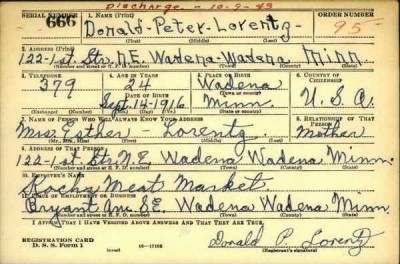 Discharge - 10-9-43
SERIAL NUMBER 1. NAME (Print) ORDER NUMBER
666 Donald-Peter-Lorentz- 95
(First) (Middle) (Last)
2. ADDRESS (Print)
122-1st Str. N.E. Wadena-Wadena Minn.
(Number and street or R. F. D. number) (Town) (County) (State)
3. TELEPHONE 4. AGE IN YEARS 5. PLACE OF BIRTH 6. COUNTRY OF CITIZENSHIP
379 24 Wadena
DATE OF BIRTH (Town or county)
Sept. 14-1916 Minn. U.S.A.
(Exchange) (Number) (Mo.) (Day) (Yr.) (State or country)
7. NAME OF PERSON WHO WILL ALWAYS KNOW YOUR ADDRESS 8. RELATIONSHIP OF THAT PERSON
Mrs. Esther - Lorentz Mother
(Mr., Mrs., Miss) (First) (Middle) (Last)
9. ADDRESS OF THAT PERSON
122-1st Str. N.E. Wadena Wadena Minn.
(Number and street or R. F. D. number) (Town) (County) (State)
10. EMPLOYER'S NAME
Meat Market
11. PLACE OF EMPLOYMENT OR BUSINESS
Bryant Ave S.E. Wadena Wadena Minn.
(Number and street or R. F. D. number) (Town) (County) (State)
I AFFIRM THAT I HAVE VERIFIED ABOVE ANSWERS AND THAT THEY ARE TRUE.
REGISTRATION CARD
D. S. S. Form 1 Donald P. Lorentz
(Registrant's signature)